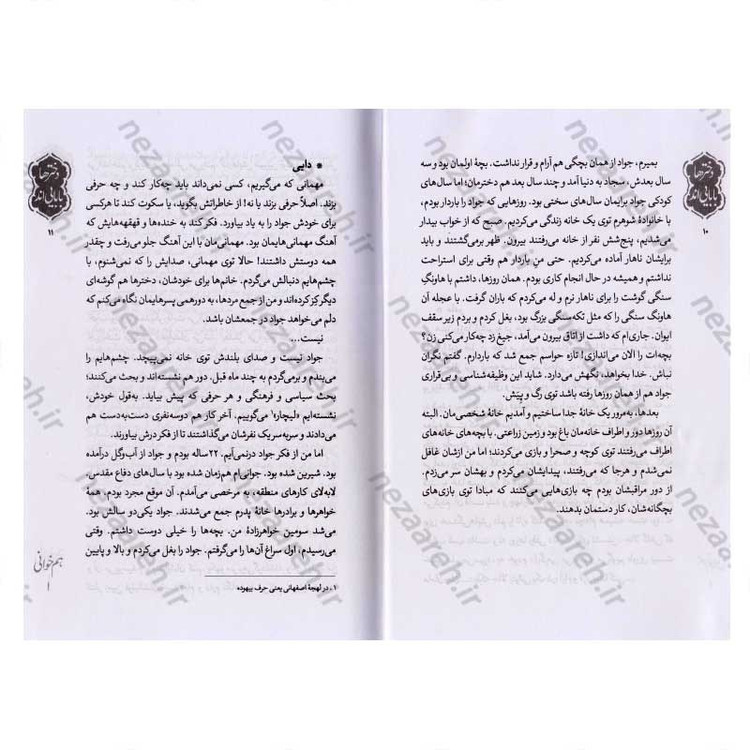 دخترها
بابایی‌اند
۱۰
بمیرم، جواد از همان بچگی هم آرام و قرار نداشت. بچهٔ اولمان بود و سه
سال بعدش، سجاد به دنیا آمد و چند سال بعد هم دخترمان؛ اما سال‌های
کودکی جواد برایمان سال‌های سختی بود. روزهایی که جواد را باردار بودم،
با خانوادهٔ شوهرم توی یک خانه زندگی می‌کردیم. صبح که از خواب بیدار
می‌شدیم، پنج‌شش نفر از خانه می‌رفتند بیرون. ظهر برمی‌گشتند و باید
برایشان ناهار آماده می‌کردیم. حتی منِ باردار هم وقتی برای استراحت
نداشتم و همیشه در حال انجام کاری بودم. همان روزها، داشتم با هاونگِ
سنگی گوشت را برای ناهار نرم و له می‌کردم که باران گرفت. با عجله آن
هاونگ سنگی را که مثل تکه‌سنگی بزرگ بود، بغل کردم و بردم زیر سقف
ایوان. جاری‌ام که داشت از اتاق بیرون می‌آمد، جیغ زد چه‌کار می‌کنی زن؟
بچه‌ات را الان می‌اندازی! تازه حواسم جمع شد که باردارم. گفتم نگران
نباش. خدا بخواهد، نگهش می‌دارد. شاید این وظیفه‌شناسی و بی‌قراری
جواد هم از همان روزها رفته باشد توی رگ و پِیَش.
بعدها، به‌مرور یک خانهٔ جدا ساختیم و آمدیم خانهٔ شخصی‌مان. البته
آن روزها دور و اطراف خانه‌مان باغ بود و زمین زراعتی. با بچه‌های خانه‌های
اطراف می‌رفتند توی کوچه و صحرا و بازی می‌کردند؛ اما من ازشان غافل
نمی‌شدم و هرجا که می‌رفتند، پیدایشان می‌کردم و بهشان سر می‌زدم.
از دور مراقبشان بودم چه بازی‌هایی می‌کنند که مبادا توی بازی‌های
بچگانه‌شان، کار دستمان بدهند.
دخترها
بابایی‌اند
۱۱
● دایی
مهمانی که می‌گیریم، کسی نمی‌داند باید چه‌کار کند و چه حرفی
بزند. اصلاً حرفی بزند یا نه! از خاطراتش بگوید، یا سکوت کند تا هرکسی
برای خودش جواد را به یاد بیاورد. فکر کند به خنده‌ها و قهقهه‌هایش که
آهنگ مهمانی‌هایمان بود. مهمانی‌مان با این آهنگ جلو می‌رفت و چقدر
همه دوستش داشتند! حالا توی مهمانی، صدایش را که نمی‌شنوم، با
چشم‌هایم دنبالش می‌گردم. خانم‌ها برای خودشان، دخترها هم گوشه‌ای
دیگر کِز کرده‌اند و من از جمع مردها، به دورهمی پسرهایمان نگاه می‌کنم که
دلم می‌خواهد جواد در جمعشان باشد.
نیست...
جواد نیست و صدای بلندش توی خانه نمی‌پیچد. چشم‌هایم را
می‌بندم و برمی‌گردم به چند ماه قبل. دور هم نشسته‌اند و بحث می‌کنند؛
بحث سیاسی و فرهنگی و هر حرفی که پیش بیاید. به‌قول خودش،
نشسته‌ایم «لیچار»۱ می‌گوییم. آخر کار هم دوسه‌نفری دست‌به‌دست هم
می‌دادند و سربه‌سر یک نفرشان می‌گذاشتند تا از فکرش درش بیاورند.
اما من از فکر جواد درنمی‌آیم. ۲۲ساله بودم و جواد از آب‌وگل درآمده
بود. شیرین شده بود. جوانی‌ام هم‌زمان شده بود با سال‌های دفاع مقدس.
لابه‌لای کارهای منطقه، به مرخصی می‌آمدم. آن موقع مجرد بودم. همهٔ
خواهرها و برادرها خانهٔ پدرم جمع می‌شدند. جواد یکی‌دو سالش بود.
می‌شد سومین خواهرزادهٔ من. بچه‌ها را خیلی دوست داشتم. وقتی
می‌رسیدم، اول سراغ آن‌ها را می‌گرفتم. جواد را بغل می‌کردم و بالا و پایین
۱. در لهجهٔ اصفهانی یعنی حرف بیهوده
هم‌خوانی
۱
nezaareh.ir